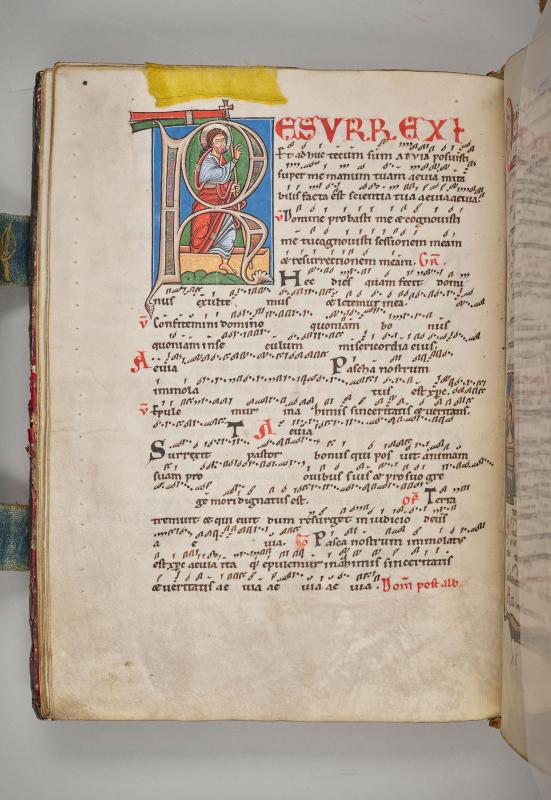 RESURREXI
Et adhuc tecum sum aevia posuisti
super me manum tuam aevia mira
bilis facta est scientia tua aevia aevia
V Domine probasti me & cognovisti
me tu cognovisti sessionem meam
& resurrectionem meam. Gr.
Hec dies quam fecit domi
nus exulte mus & letemur in ea.
V Confitemini domino quoniam bo nus
quoniam in se culum misericordia eius.
A evia Pascha nostrum
immola tus est xpc.
V Epule mur in a himis sinceritatis & veritatis.
A evia.
Surrexit pastor bonus qui pos uit animam
suam pro ovibus suis & pro suo gre
ge mori dignatus est. OF Terra
tremuit & qui evit dum resurget in iudicio deus
a e via. Co Pasca nostrum immolatus
est xpc aevia ita q; epulemur in a himis sinceritatis
& veritatis ae via ae via ae via. Dom post alb